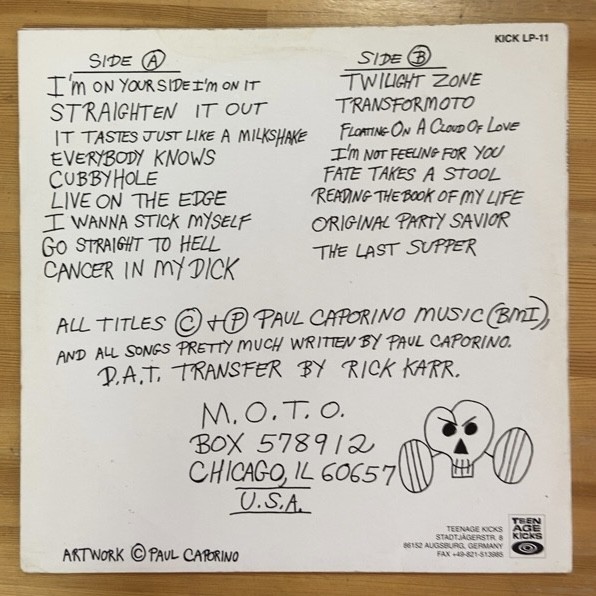 KICK LP-11
SIDE A
I'm ON YOUR SIDE I'm ON IT
STRAIGHTEN IT OUT
IT TASTES JUST LIKE A MILKSHAKE
EVERYBODY KNOWS
CUBBYHOLE
LIVE ON THE EDGE
I WANNA STICK MYSELF
GO STRAIGHT TO HELL
CANCER IN MY DICK
SIDE B
TWILIGHT ZONE
TRANSFORMOTO
FLOATING ON A CLOUD OF LOVE
I'M NOT FEELING FOR YOU
FATE TAKES A STOOL
READING THE BOOK OF MY LIFE
ORIGINAL PARTY SAVIOR
THE LAST SUPPER
ALL TITLES © + ℗ PAUL CAPORINO MUSIC (BMI),
AND ALL SONGS PRETTY MUCH WRITTEN BY PAUL CAPORINO.
D.A.T. TRANSFER BY RICK KARR.
M.O.T.O.
BOX 578912
CHICAGO, IL 60657
U.S.A.
TEENAGE KICKS
STADTJÄGERSTR. 8
86152 AUGSBURG, GERMANY
FAX +49-821-513985
TEEN
AGE
KICKS
ARTWORK © PAUL CAPORINO